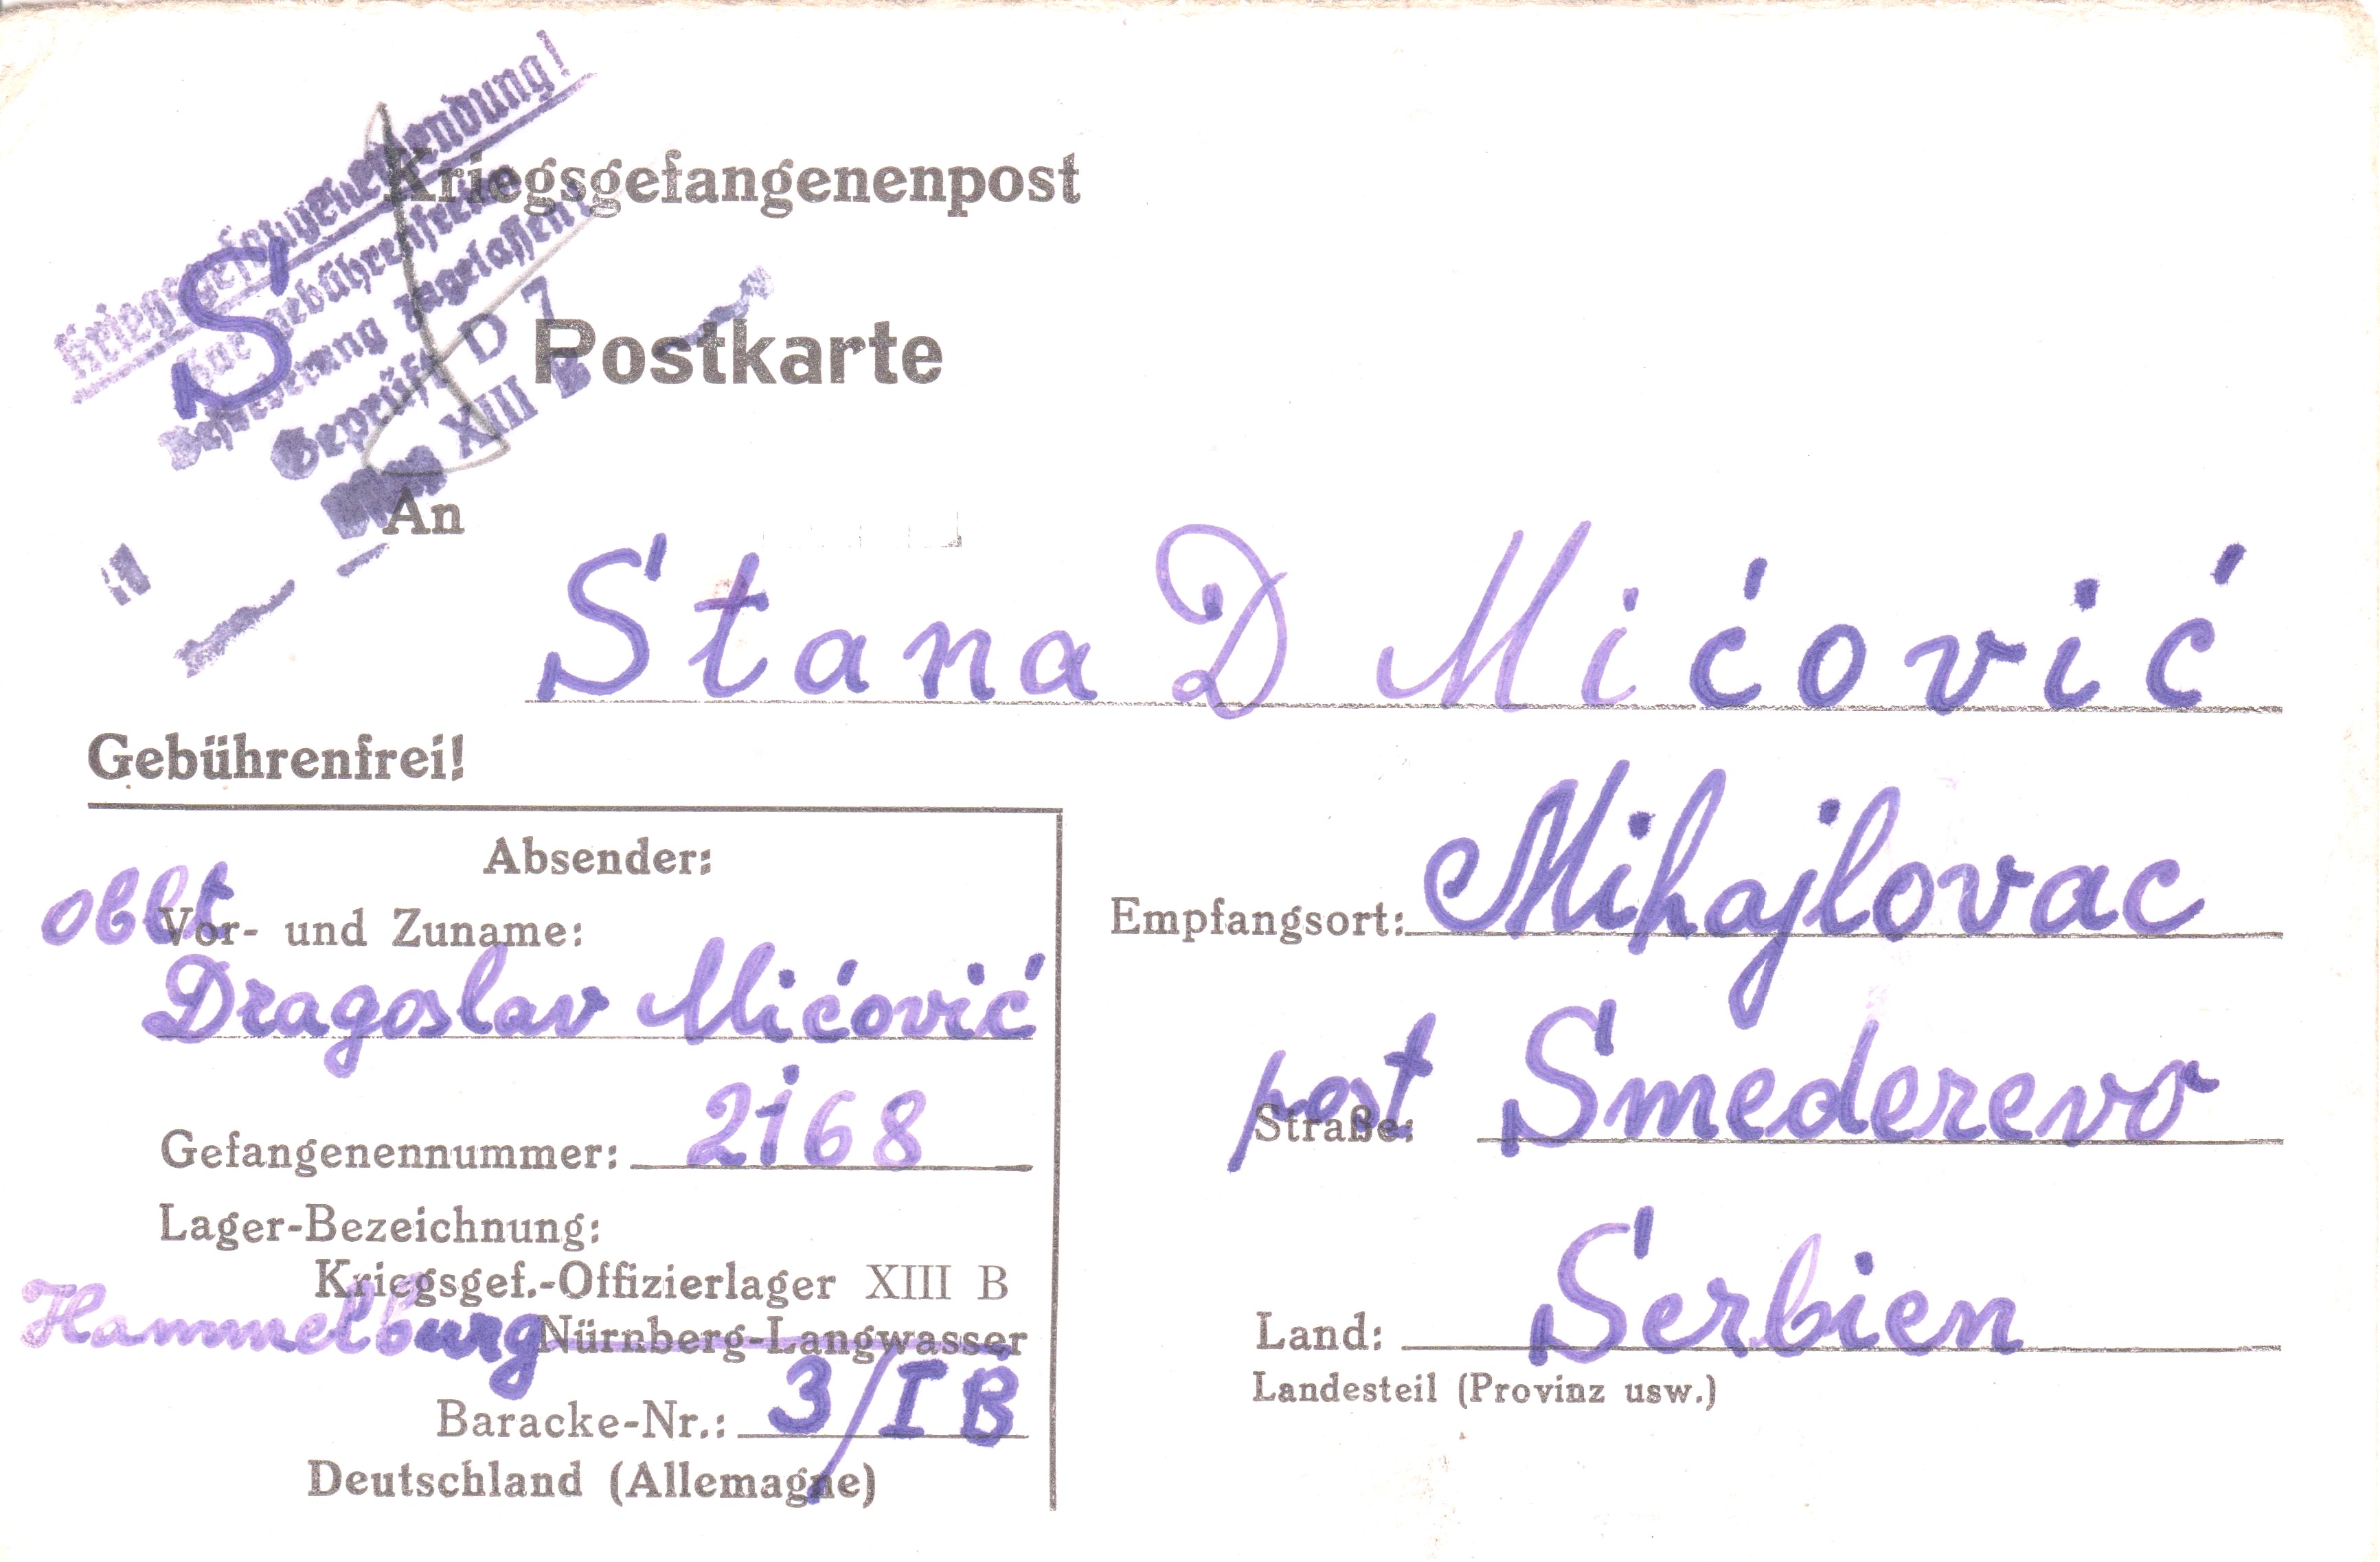 Kriegsgefangenensendung!
Zur gebührenfreien
Beförderung zugelassen!
Geprüft D 7
XIII B
Kriegsgefangenenpost
S
Postkarte
An
Stana D Mićović
Gebührenfrei!
Absender:
oblt
Vor- und Zuname:
Dragoslav Mićović
Gefangenennummer: 2168
Lager-Bezeichnung:
Kriegsgef.-Offizierlager XIII B
Hammelburg Nürnberg-Langwasser
Baracke-Nr.: 3/I B
Deutschland (Allemagne)
Empfangsort: Mihajlovac
post Straße: Smederevo
Land: Serbien
Landesteil (Provinz usw.)